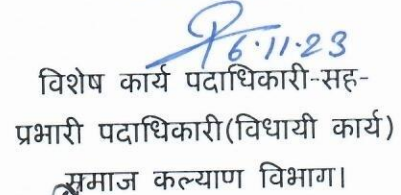 6.11.23
विशेष कार्य पदाधिकारी-सह-
प्रभारी पदाधिकारी(विधायी कार्य)
समाज कल्याण विभाग।